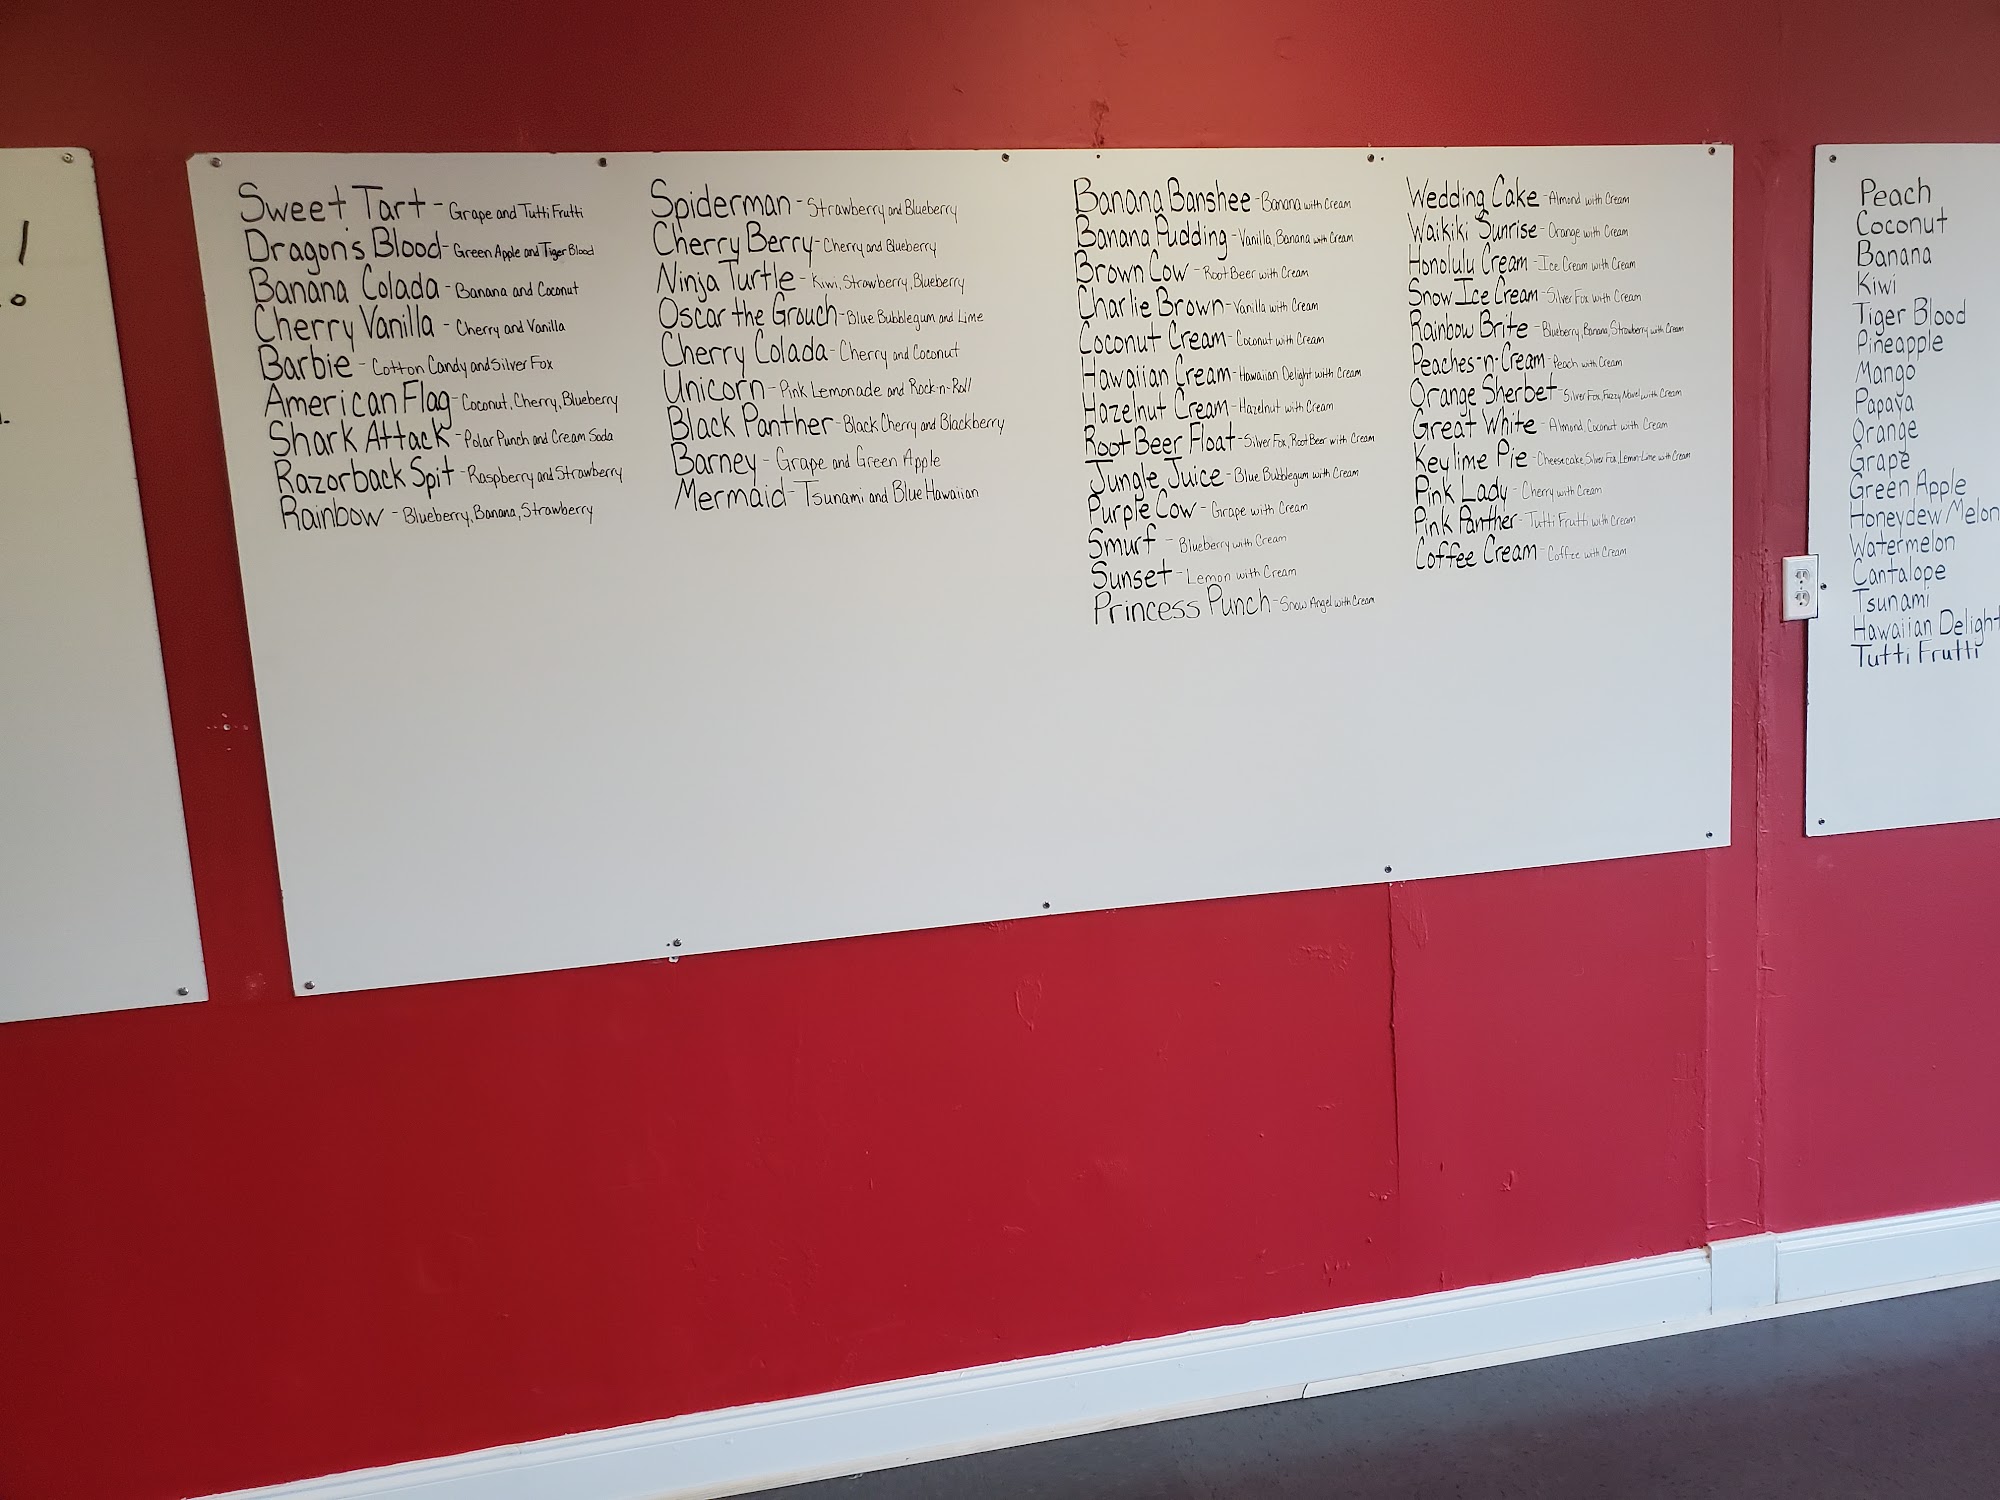 Sweet Tart - Grape and Tutti Frutti
Dragon's Blood - Green Apple and Tiger Blood
Banana Colada - Banana and Coconut
Cherry Vanilla - Cherry and Vanilla
Barbie - Cotton Candy and Silver Fox
American Flag - Coconut, Cherry, Blueberry
Shark Attack - Polar Punch and Cream Soda
Razorback Spit - Raspberry and Strawberry
Rainbow - Blueberry, Banana, Strawberry
Spiderman - Strawberry and Blueberry
Cherry Berry - Cherry and Blueberry
Ninja Turtle - Kiwi, Strawberry, Blueberry
Oscar the Grouch - Blue Bubblegum and Lime
Cherry Colada - Cherry and Coconut
Unicorn - Pink Lemonade and Rock-n-Roll
Black Panther - Black Cherry and Blackberry
Barney - Grape and Green Apple
Mermaid - Tsunami and Blue Hawaiian
Banana Banshee - Banana with Cream
Banana Pudding - Vanilla, Banana with Cream
Brown Cow - Root Beer with Cream
Charlie Brown - Vanilla with Cream
Coconut Cream - Coconut with Cream
Hawaiian Cream - Hawaiian Delight with Cream
Hazelnut Cream - Hazelnut with Cream
Root Beer Float - Silver Fox, Root Beer with Cream
Jungle Juice - Blue Bubblegum with Cream
Purple Cow - Grape with Cream
Smurf - Blueberry with Cream
Sunset - Lemon with Cream
Princess Punch - Snow Angel with Cream
Wedding Cake - Almond with Cream
Waikiki Sunrise - Orange with Cream
Honolulu Cream - Ice Cream with Cream
Snow Ice Cream - Silver Fox with Cream
Rainbow Brite - Blueberry, Banana, Strawberry with Cream
Peaches-n-Cream - Peach with Cream
Orange Sherbet - Silver Fox, Fuzzy Navel with Cream
Great White - Almond, Coconut with Cream
Key lime Pie - Cheesecake, Silver Fox, Lemon-Lime with Cream
Pink Lady - Cherry with Cream
Pink Panther - Tutti Frutti with Cream
Coffee Cream - Coffee with Cream
Peach
Coconut
Banana
Kiwi
Tiger Blood
Pineapple
Mango
Papaya
Orange
Grape
Green Apple
Honeydew Melon
Watermelon
Cantalope
Tsunami
Hawaiian Delight
Tutti Frutti